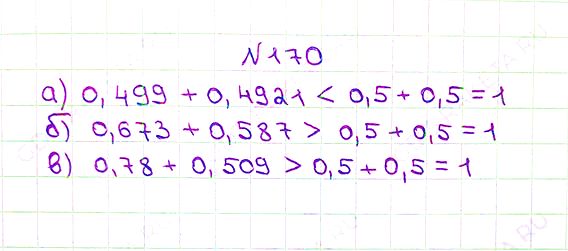 N170
а) 0,499 + 0,4921 < 0,5 + 0,5 = 1
б) 0,673 + 0,587 > 0,5 + 0,5 = 1
в) 0,78 + 0,509 > 0,5 + 0,5 = 1